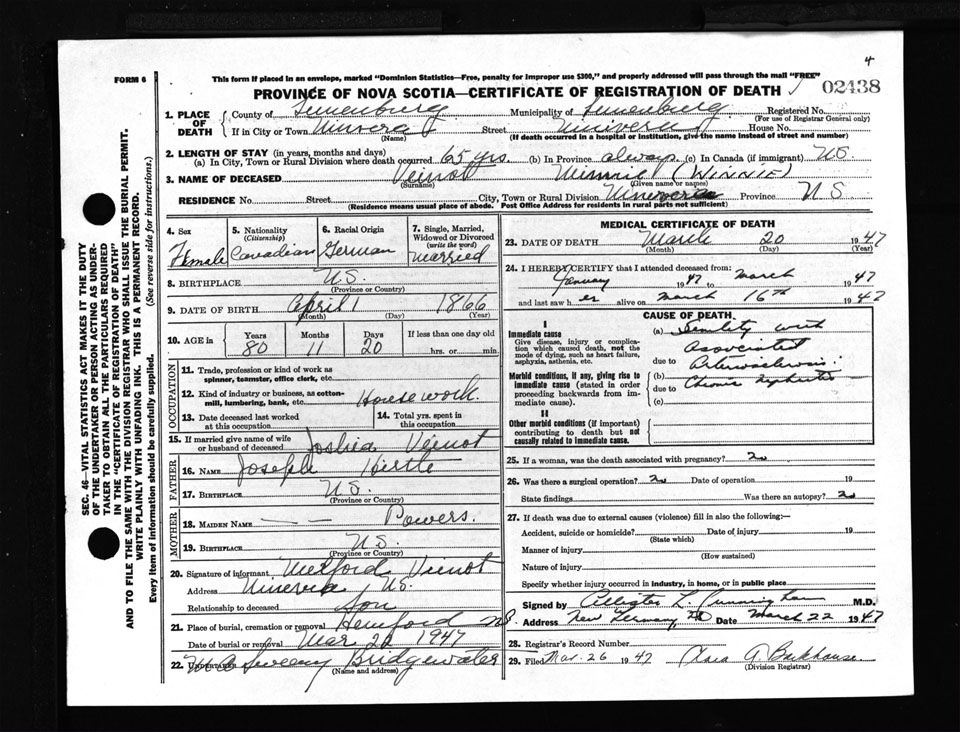 4
FORM 6
This form if placed in an envelope, marked "Dominion Statistics—Free, penalty for improper use $300," and properly addressed will pass through the mail "FREE"
PROVINCE OF NOVA SCOTIA—CERTIFICATE OF REGISTRATION OF DEATH
02438
1. PLACE OF DEATH
County of Lunenburg Municipality of Lunenburg Registered No.
(For use of Registrar General only)
If in City or Town Street House No.
(Name) (If death occurred in a hospital or institution, give the name instead of street and number)
2. LENGTH OF STAY (in years, months and days)
(a) In City, Town or Rural Division where death occurred 65 yrs. (b) In Province always (c) In Canada (if immigrant) NS
3. NAME OF DECEASED Veinot Minnie (WINNIE)
(Surname) (Given name or names)
RESIDENCE No. Street City, Town or Rural Division Province N S
(Residence means usual place of abode. Post Office Address for residents in rural parts not sufficient)
4. Sex Female
5. Nationality (Citizenship) Canadian
6. Racial Origin German
7. Single, Married, Widowed or Divorced (write the word) married
8. BIRTHPLACE N.S.
(Province or Country)
9. DATE OF BIRTH April 1 1866
(Month) (Day) (Year)
10. AGE in Years 80 Months 11 Days 20 If less than one day old hrs. or min.
OCCUPATION
11. Trade, profession or kind of work as spinner, teamster, office clerk, etc.
12. Kind of industry or business, as cotton-mill, lumbering, bank, etc. Housework.
13. Date deceased last worked at this occupation
14. Total yrs. spent in this occupation
15. If married give name of wife or husband of deceased Joshia Veinot
FATHER
16. NAME Joseph Hirtle
17. BIRTHPLACE N.S.
(Province or Country)
MOTHER
18. MAIDEN NAME — — Powers.
19. BIRTHPLACE N.S.
(Province or Country)
20. Signature of informant Melford Veinot
Address N.S.
Relationship to deceased Son
21. Place of burial, cremation or removal Hemford NS
Date of burial or removal Mar 22 1947
22. UNDERTAKER Sweeny Bridgewater
(Name and address)
MEDICAL CERTIFICATE OF DEATH
23. DATE OF DEATH March 20 1947
(Month) (Day) (Year)
24. I HEREBY CERTIFY that I attended deceased from:
January 1947 to March 1947
and last saw her alive on March 16th 1947
CAUSE OF DEATH
I
Immediate cause
Give disease, injury or complication which caused death, not the mode of dying, such as heart failure, asphyxia, asthenia, etc.
(a) Senility with
associated
due to Arteriosclerosis.
Morbid conditions, if any, giving rise to immediate cause (stated in order proceeding backwards from immediate cause).
(b) Chronic Nephritis
due to
(c)
II
Other morbid conditions (if important) contributing to death but not causally related to immediate cause.
25. If a woman, was the death associated with pregnancy? no
26. Was there a surgical operation? no Date of operation 19
State findings Was there an autopsy? no
27. If death was due to external causes (violence) fill in also the following:—
Accident, suicide or homicide? Date of injury 19
(State which)
Manner of injury
(How sustained)
Nature of injury
Specify whether injury occurred in industry, in home, or in public place
Signed by L Cunningham M.D.
Address New Germany, NS Date March 22 1947
28. Registrar's Record Number
29. Filed Mar. 26 1947 Clara A. Barkhouse.
(Division Registrar)
SEC. 46—VITAL STATISTICS ACT MAKES IT THE DUTY
OF THE UNDERTAKER OR PERSON ACTING AS UNDER-
TAKER TO OBTAIN ALL THE PARTICULARS REQUIRED
IN THE "CERTIFICATE OF REGISTRATION OF DEATH"
AND TO FILE THE SAME WITH THE DIVISION REGISTRAR WHO SHALL ISSUE THE BURIAL PERMIT.
WRITE PLAINLY WITH UNFADING INK. THIS IS A PERMANENT RECORD.
Every item of information should be carefully supplied. (See reverse side for instructions.)